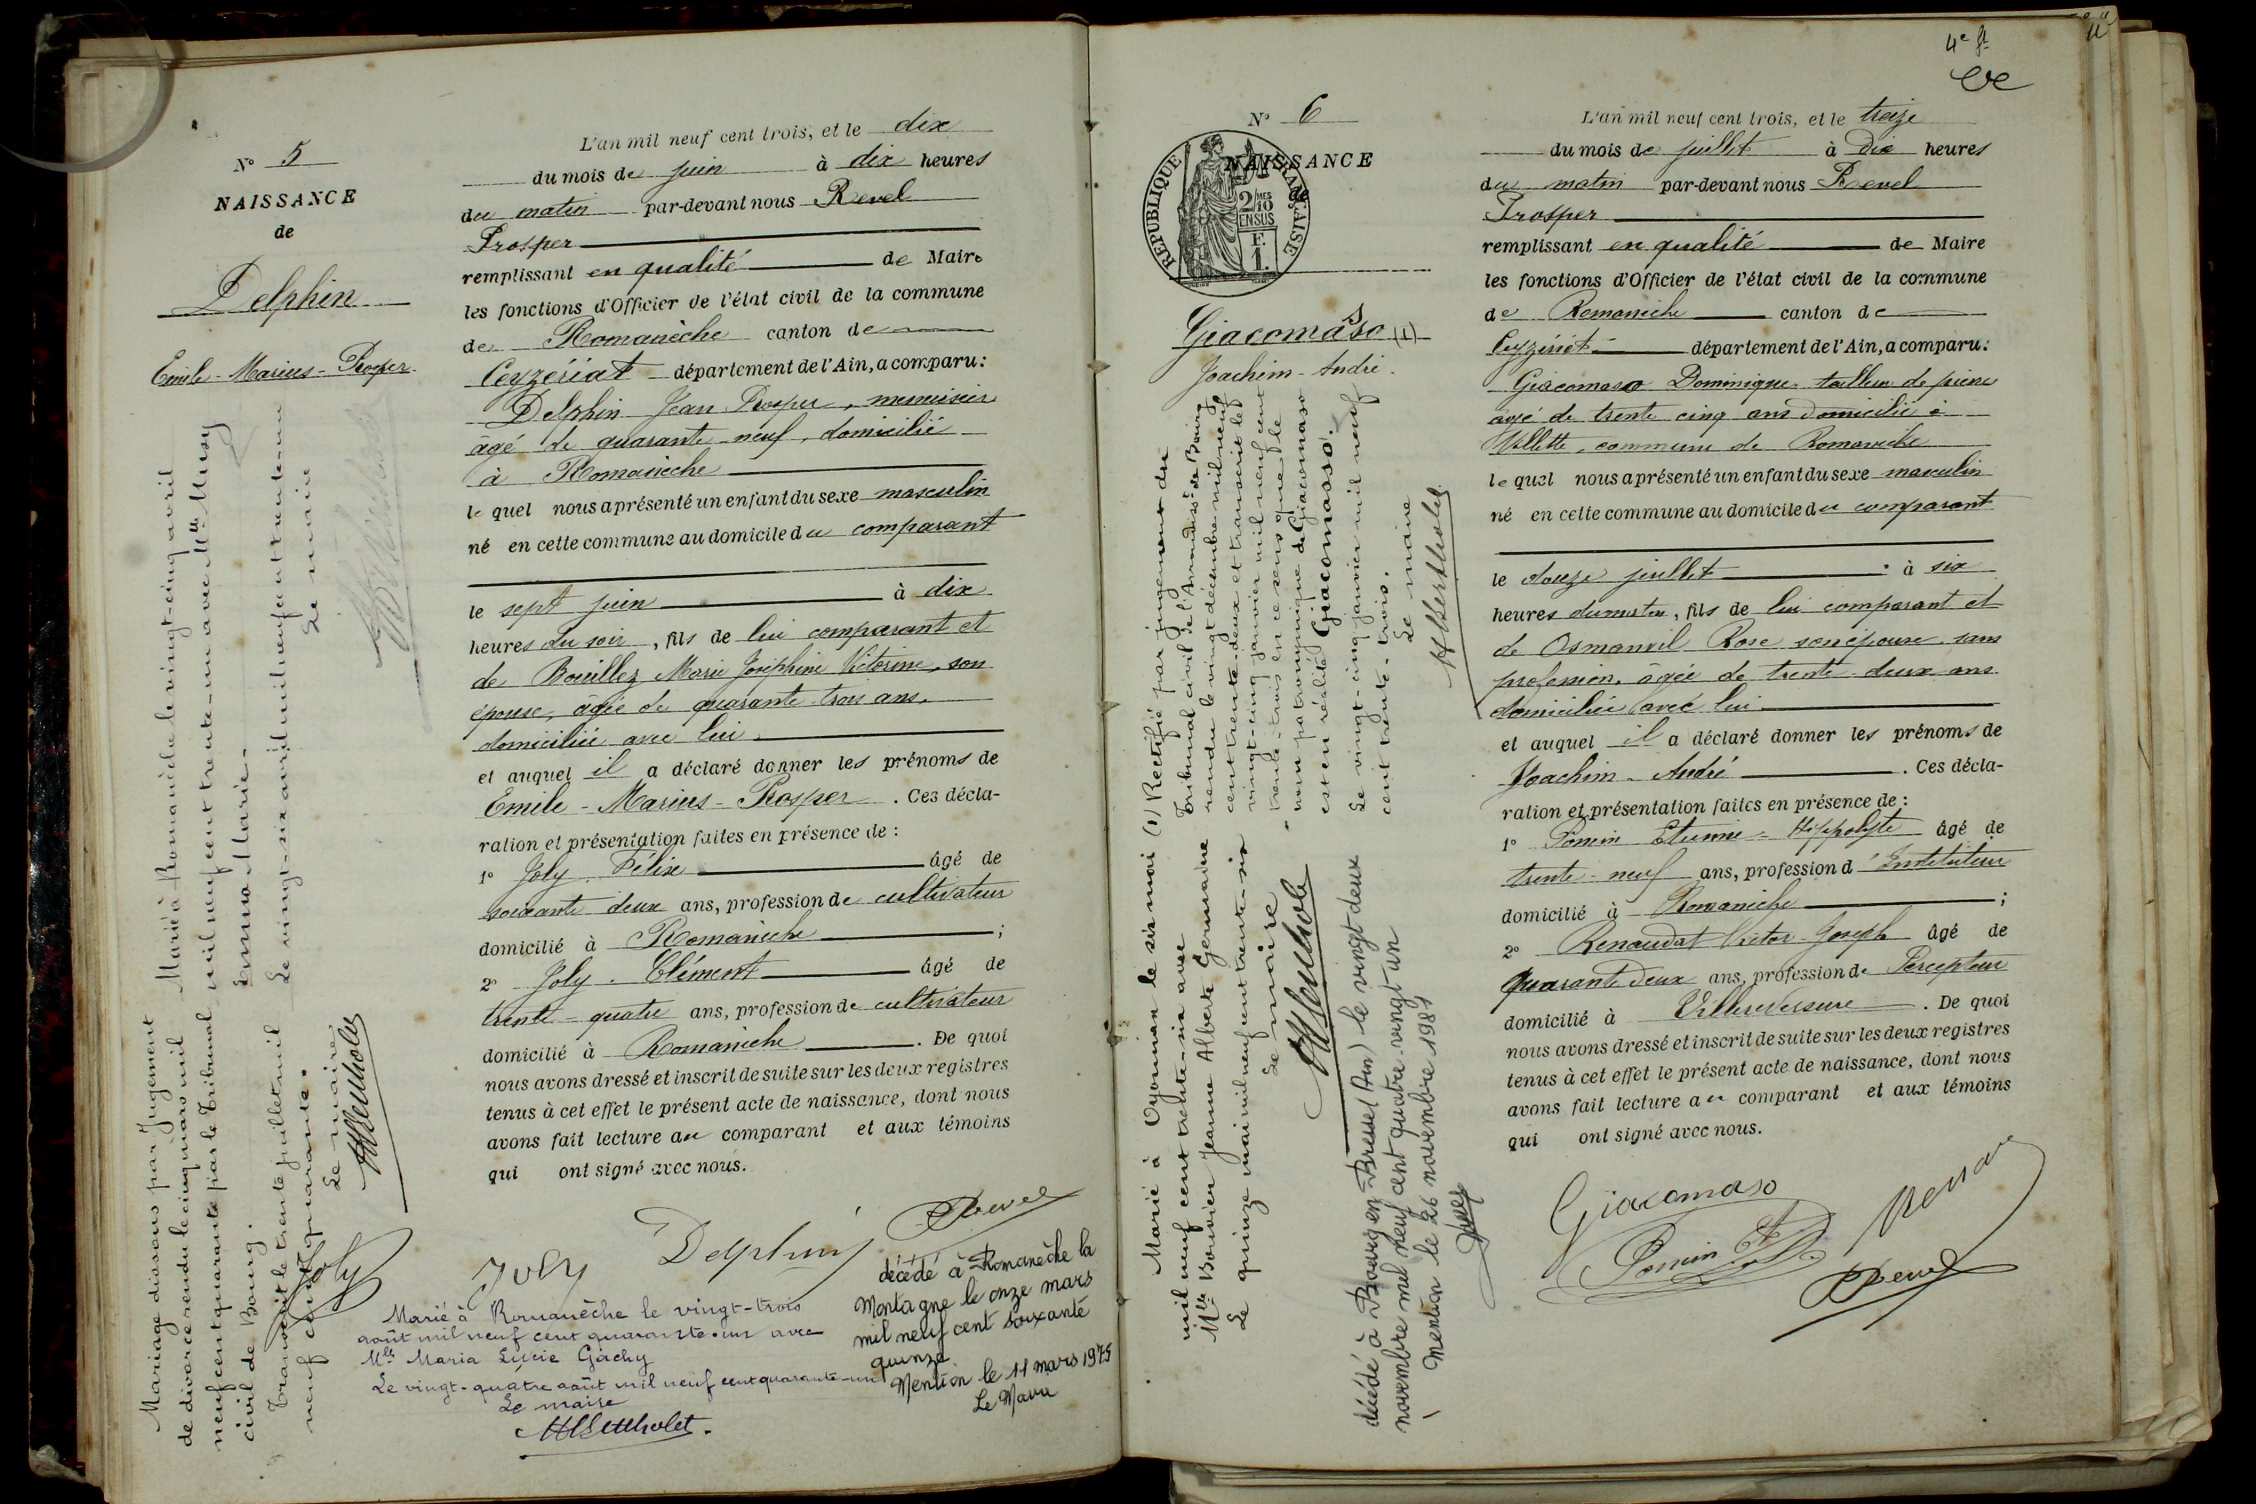 N° 5
NAISSANCE
de
Delphin
Emile - Marius - Prosper
L'an mil neuf cent trois, et le dix
du mois de juin à dix heures
du matin par-devant nous Revel
Prosper
remplissant en qualité de Maire
les fonctions d'Officier de l'état civil de la commune
de Romanèche canton de
Ceyzériat département de l'Ain, a comparu:
Delphin Jean Prosper, menuisier
âgé de quarante-neuf, domicilié
à Romanèche
le quel nous a présenté un enfant du sexe masculin
né en cette commune au domicile du comparant
le sept juin à dix
heures du soir, fils de lui comparant et
de Bouillez Marie Joséphine Victorine, son
épouse, âgée de quarante-trois ans,
domiciliée avec lui.
et auquel il a déclaré donner les prénoms de
Emile - Marius - Prosper. Ces décla-
ration et présentation faites en présence de:
1° Joly Félix âgé de
soixante deux ans, profession de cultivateur
domicilié à Romanèche;
2° Joly Clément âgé de
trente-quatre ans, profession de cultivateur
domicilié à Romanèche. De quoi
nous avons dressé et inscrit de suite sur les deux registres
tenus à cet effet le présent acte de naissance, dont nous
avons fait lecture au comparant et aux témoins
qui ont signé avec nous.
Joly
Joly
Delphin
Revel
Marié à Romanèche le vingt-cinq avril
mil neuf cent trente-un avec Mlle Musy
Emma Marie.
Le vingt-six avril mil neuf cent trente-un
Le maire
Mariage dissous par Jugement
de divorce rendu le cinq mars mil
neuf cent quarante par le Tribunal
civil de Bourg.
Transcrit le trente juillet mil
neuf cent quarante.
Le maire
HBertholet
Marié à Romanèche le vingt-trois
août mil neuf cent quarante-un avec
Mlle Maria Lucie Gâchy
Le vingt-quatre août mil neuf cent quarante-un
Le maire
HBertholet.
décédé à Romanèche la
Montagne le onze mars
mil neuf cent soixante
quinze
Mention le 11 mars 1975
Le Maire
4e ft
N° 6
NAISSANCE
de
REPUBLIQUE FRANÇAISE
2/10 MES
EN SUS
F.
1.
Giacomasso (1)
Joachim-André.
(1) Rectifié par jugement du
Tribunal civil de l'Arrondisst de Bourg
rendu le vingt décembre mil neuf
cent trente-deux et transcrit le
vingt-cinq janvier mil neuf cent
trente-trois en ce sens que le
nom patronymique de Giacomaso
est en réalité Giacomasso.
Le vingt-cinq janvier mil neuf
cent trente-trois.
Le maire
HBertholet
Marié à Oyonnax le six mai
mil neuf cent trente-six avec
Mlle Bouvier Jeanne Alberte Germaine
Le quinze mai mil neuf cent trente-six
Le maire
HBertholet
décédé à Bourg en Bresse (Ain) le vingt deux
novembre mil neuf cent quatre-vingt un
Mention le 26 novembre 1981
L'an mil neuf cent trois, et le treize
du mois de juillet à Dix heures
du matin par-devant nous Revel
Prosper
remplissant en qualité de Maire
les fonctions d'Officier de l'état civil de la commune
de Romanèche canton de
Ceyzériat département de l'Ain, a comparu:
Giacomaso Dominique tailleur de pierre
âgé de trente cinq ans domicilié à
Villette, commune de Romanèche
le quel nous a présenté un enfant du sexe masculin
né en cette commune au domicile du comparant
le douze juillet à six
heures du matin, fils de lui comparant et
de Rose son épouse sans
profession, âgée de trente-deux ans
domiciliée avec lui
et auquel il a déclaré donner les prénoms de
Joachim-André. Ces décla-
ration et présentation faites en présence de:
1° Ponein Etienne-Hippolyte âgé de
trente-neuf ans, profession d'Instituteur
domicilié à Romanèche;
2° Renaudat Victor Joseph âgé de
quarante deux ans, profession de Percepteur
domicilié à Villereversure. De quoi
nous avons dressé et inscrit de suite sur les deux registres
tenus à cet effet le présent acte de naissance, dont nous
avons fait lecture au comparant et aux témoins
qui ont signé avec nous.
Giacomaso
Revel